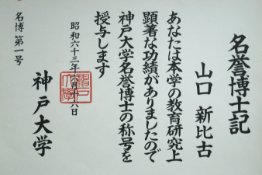 名誉博士記
山口 新比古
あなたは本学の教育研究上
顕著な功績がありましたので
神戸大学名誉博士の称号を
授与します
昭和六十三年 月十八日
神戸大学
名博第一号